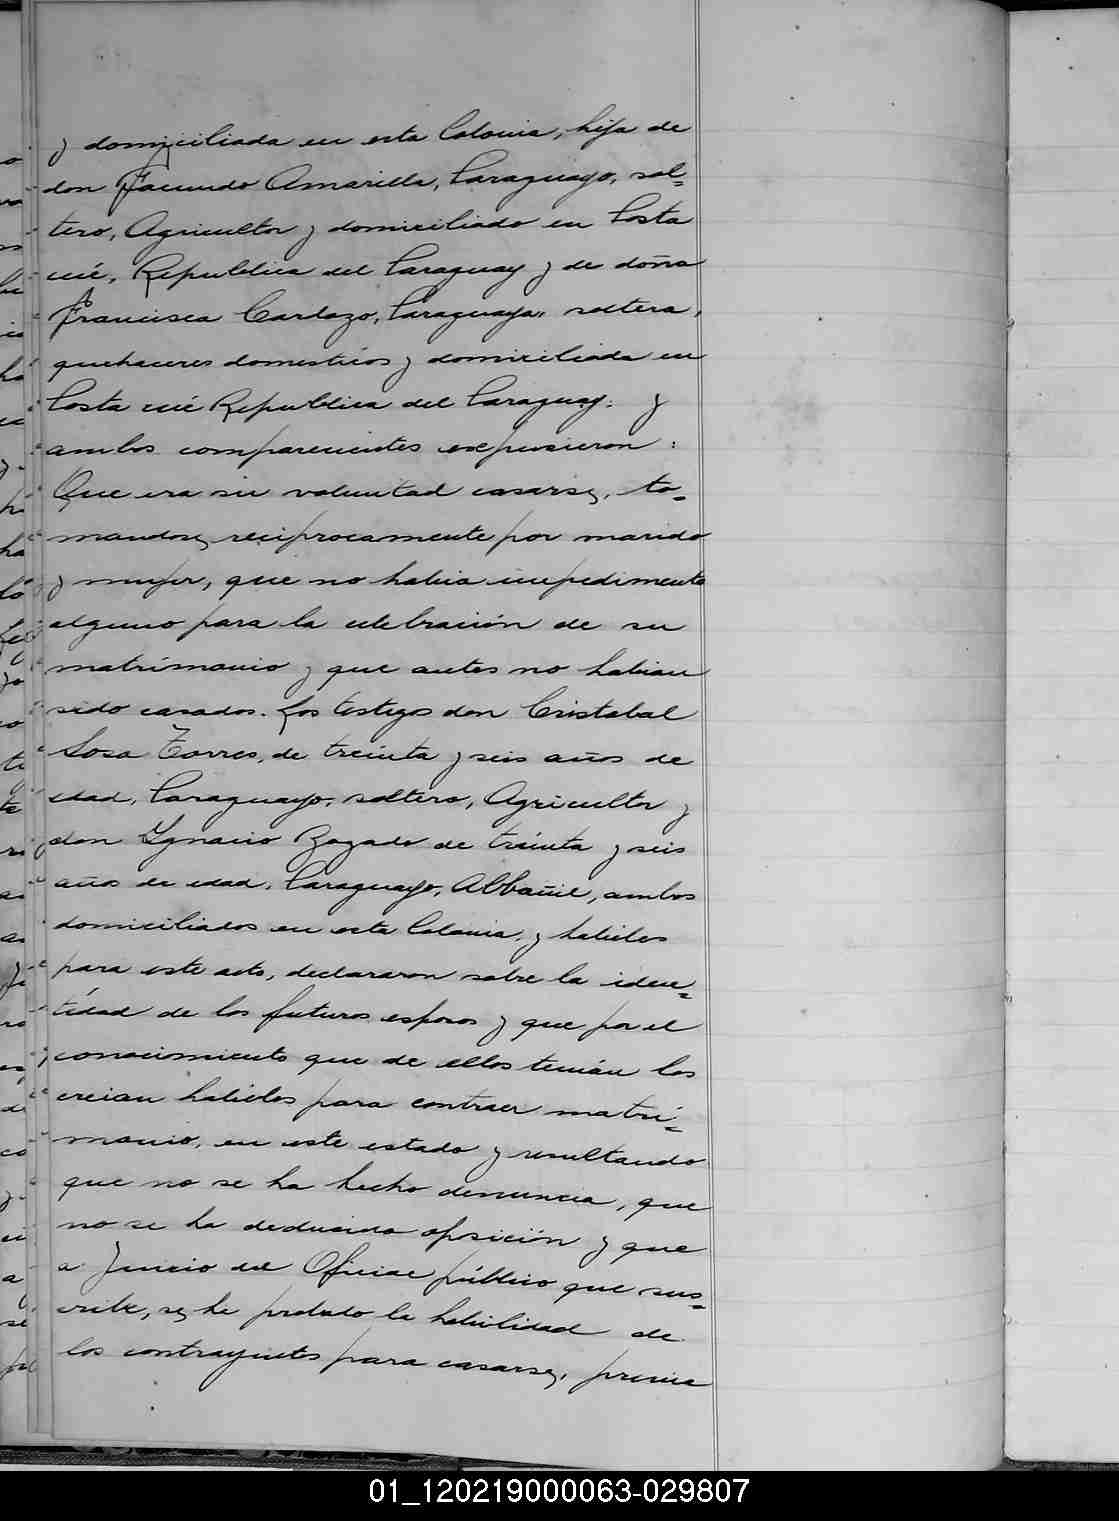 y domiciliada en esta Colonia, hija de
don Facundo Amarilla, Paraguayo, sol=
tero, Agricultor y domiciliado en Costa
cué, Republica del Paraguay y de doña
Francisca Cardozo, Paraguaya, soltera,
quehaceres domesticos y domiciliada en
Costa cué Republica del Paraguay: y
ambos comparecientes expusieron:
Que era su voluntad casarse, to=
mandose reciprocamente por marido
y mujer, que no habia impedimento
alguno para la celebración de su
matrimonio y que antes no habian
sido casados. Los testigos don Cristobal
Sosa Torres, de treinta y seis años de
edad, Paraguayo, soltero, Agricultor y
don Ygnacio Bogado de treinta y seis
años de edad, Paraguayo, Albañil, ambos
domiciliados en esta Colonia, y habiles
para este acto, declararon sobre la iden=
tidad de los futuros esposos y que por el
conocimiento que de ellos tenían los
creian habiles para contraer matri=
monio, en este estado y resultando
que no se ha hecho denuncia, que
no se ha deducido oposición y que
a Juicio del Oficial público que sus=
cribe, se ha probado la habilidad de
los contrayentes para casarse, previa
01_120219000063-029807